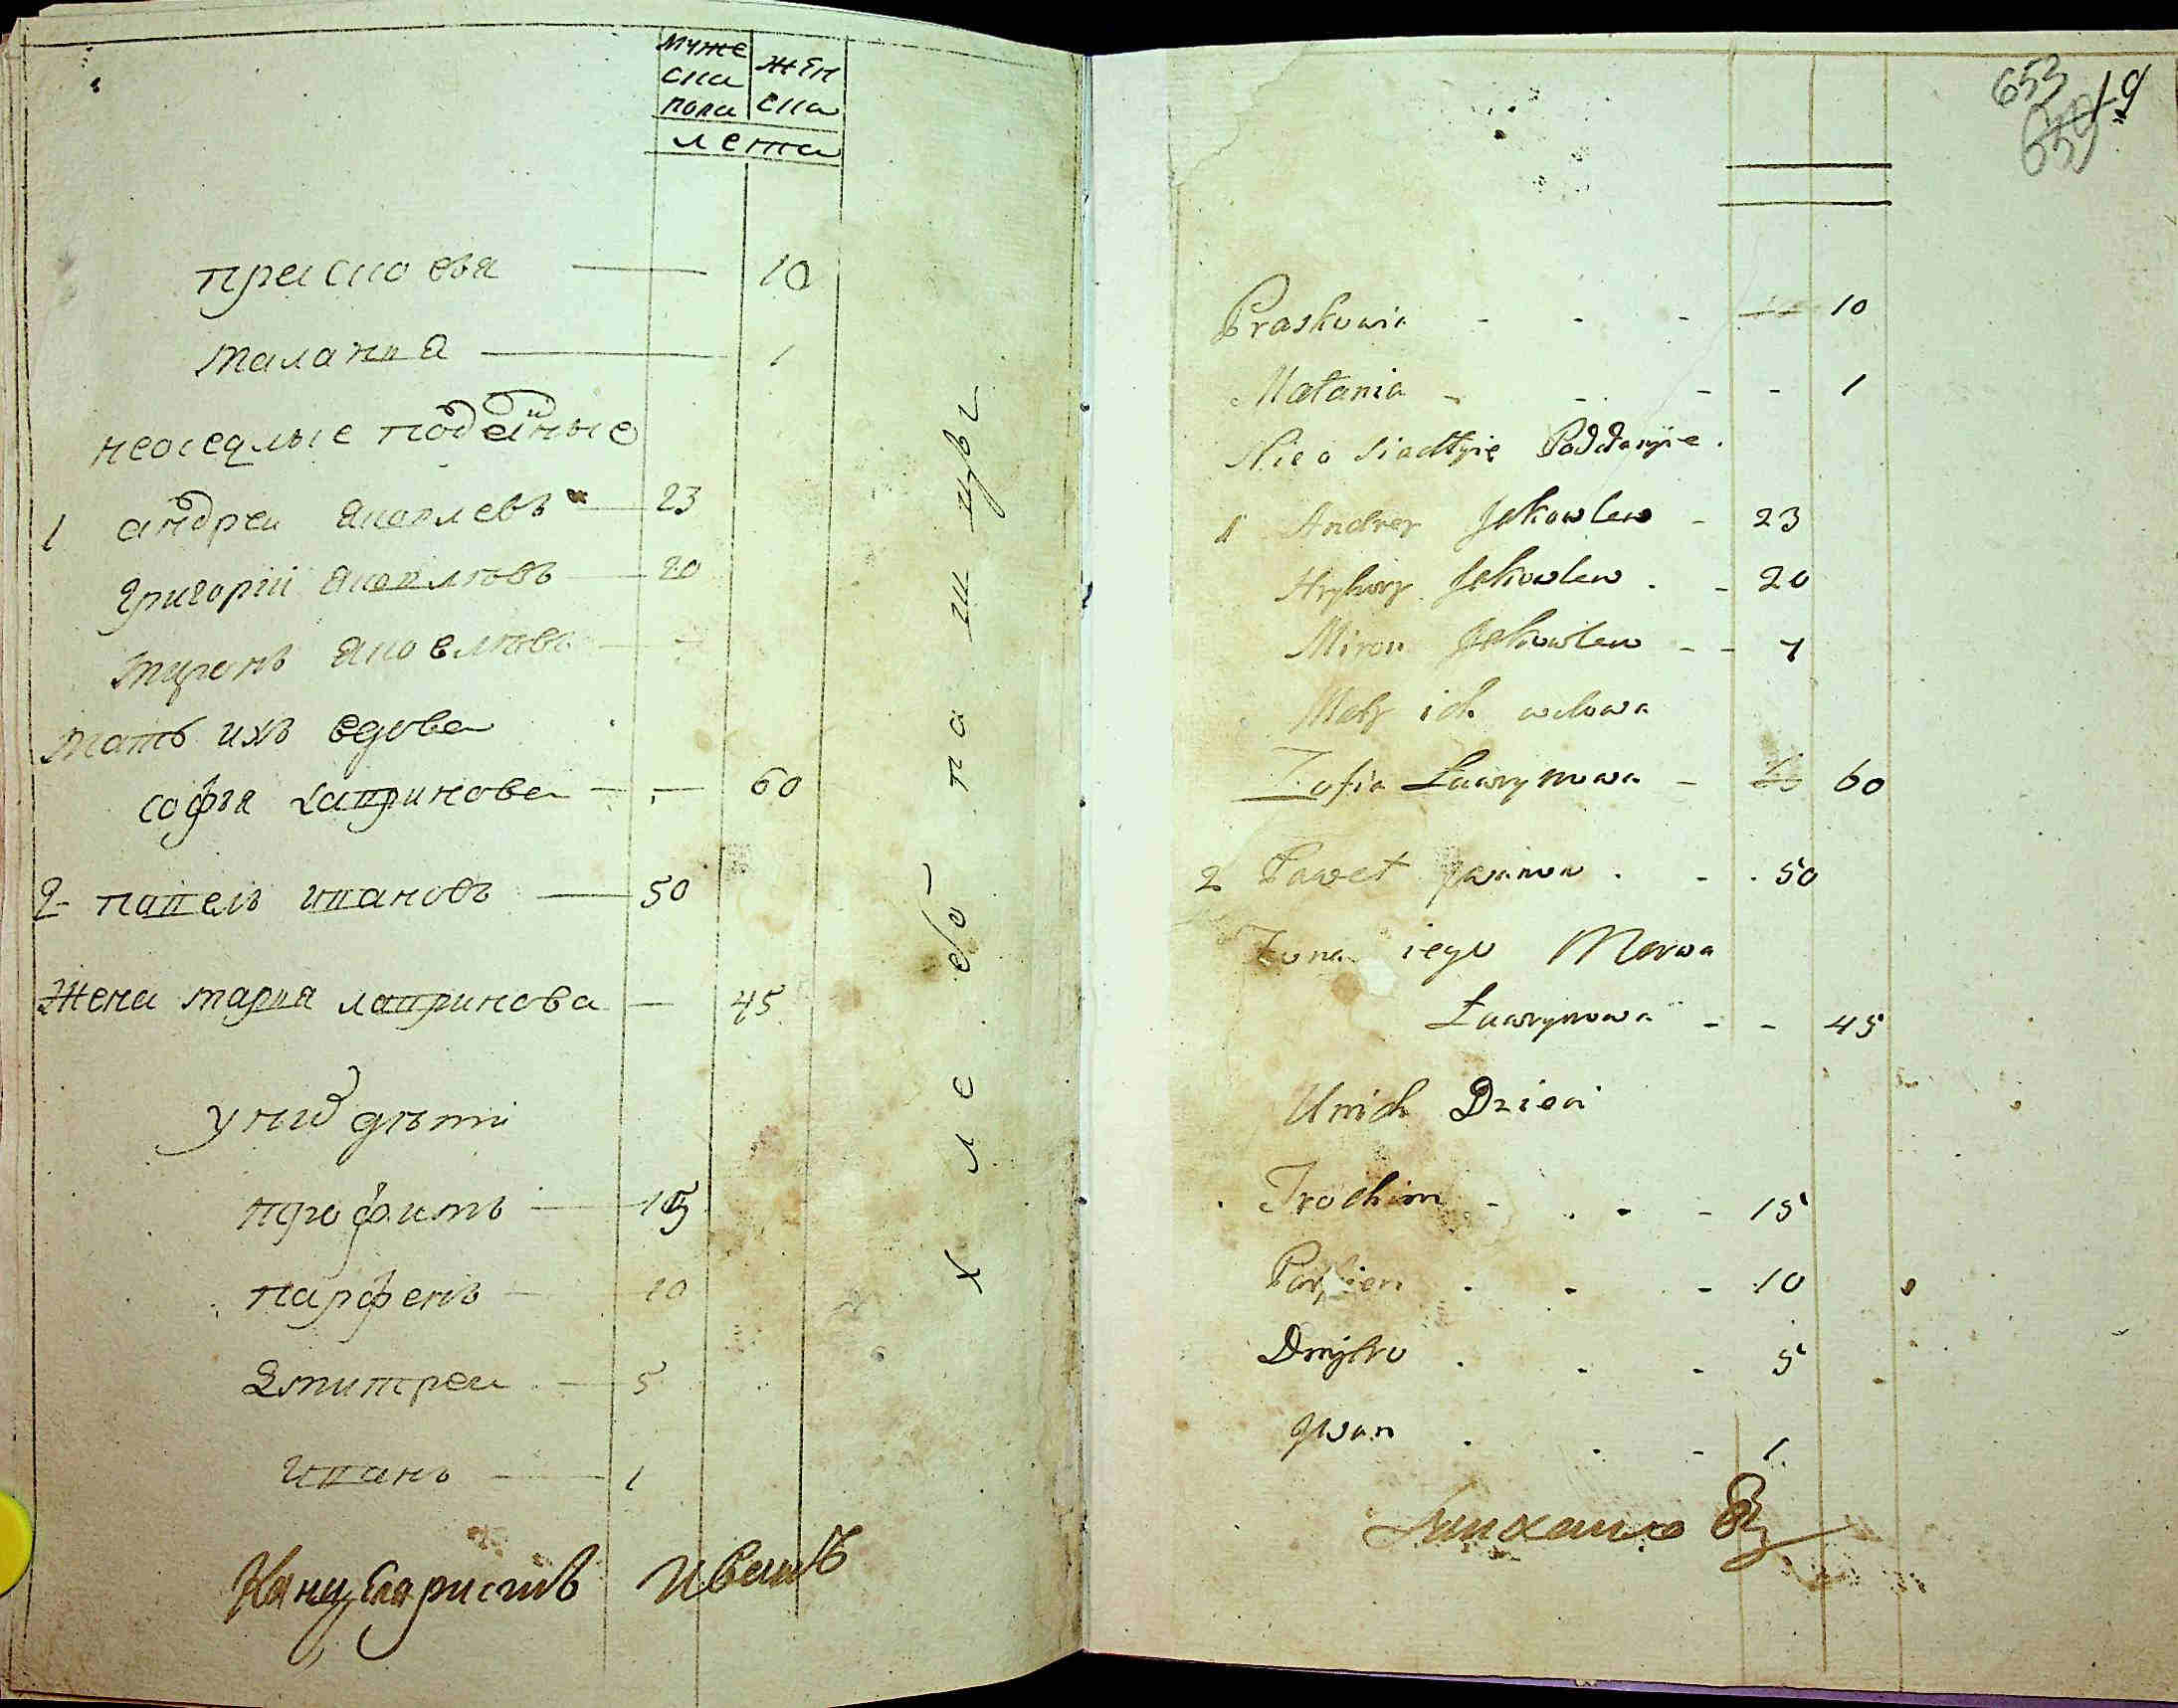 муже
ска
пола
жен
ска
лета
прасковя — 10
малания — 1
неоседлые подданые
1 андреи яковлевъ — 23
григории яковлювъ — 20
миронъ яковлювъ — 7
мать ихъ вдова
софья лавринова — 60
2 павелъ ивановъ — 50
Жена мария лавринова — 45
у них дѣти
трофимъ — 15
парфенъ — 10
Дмитреи — 5
иванъ — 1
Канцеляристъ Иванъ
653
19
Praskowia - - - 10
Małania - - - - 1
Nieosiadłyie Poddanyie.
1 Andrey Jakowlew - 23
Hryhory Jakowlew . - 20
Miron Jakowlew - - 7
Maty ich wdowa
Zofia Ławrynowa - 60
2 Paweł Jwanow . - . 50
Żona iego Marya
Ławrynowa - - 45
Unich Dzieci
Trochim - . - - 15
Parfien . - - 10
Dmitro . - - 5
Jwan . . - 1.